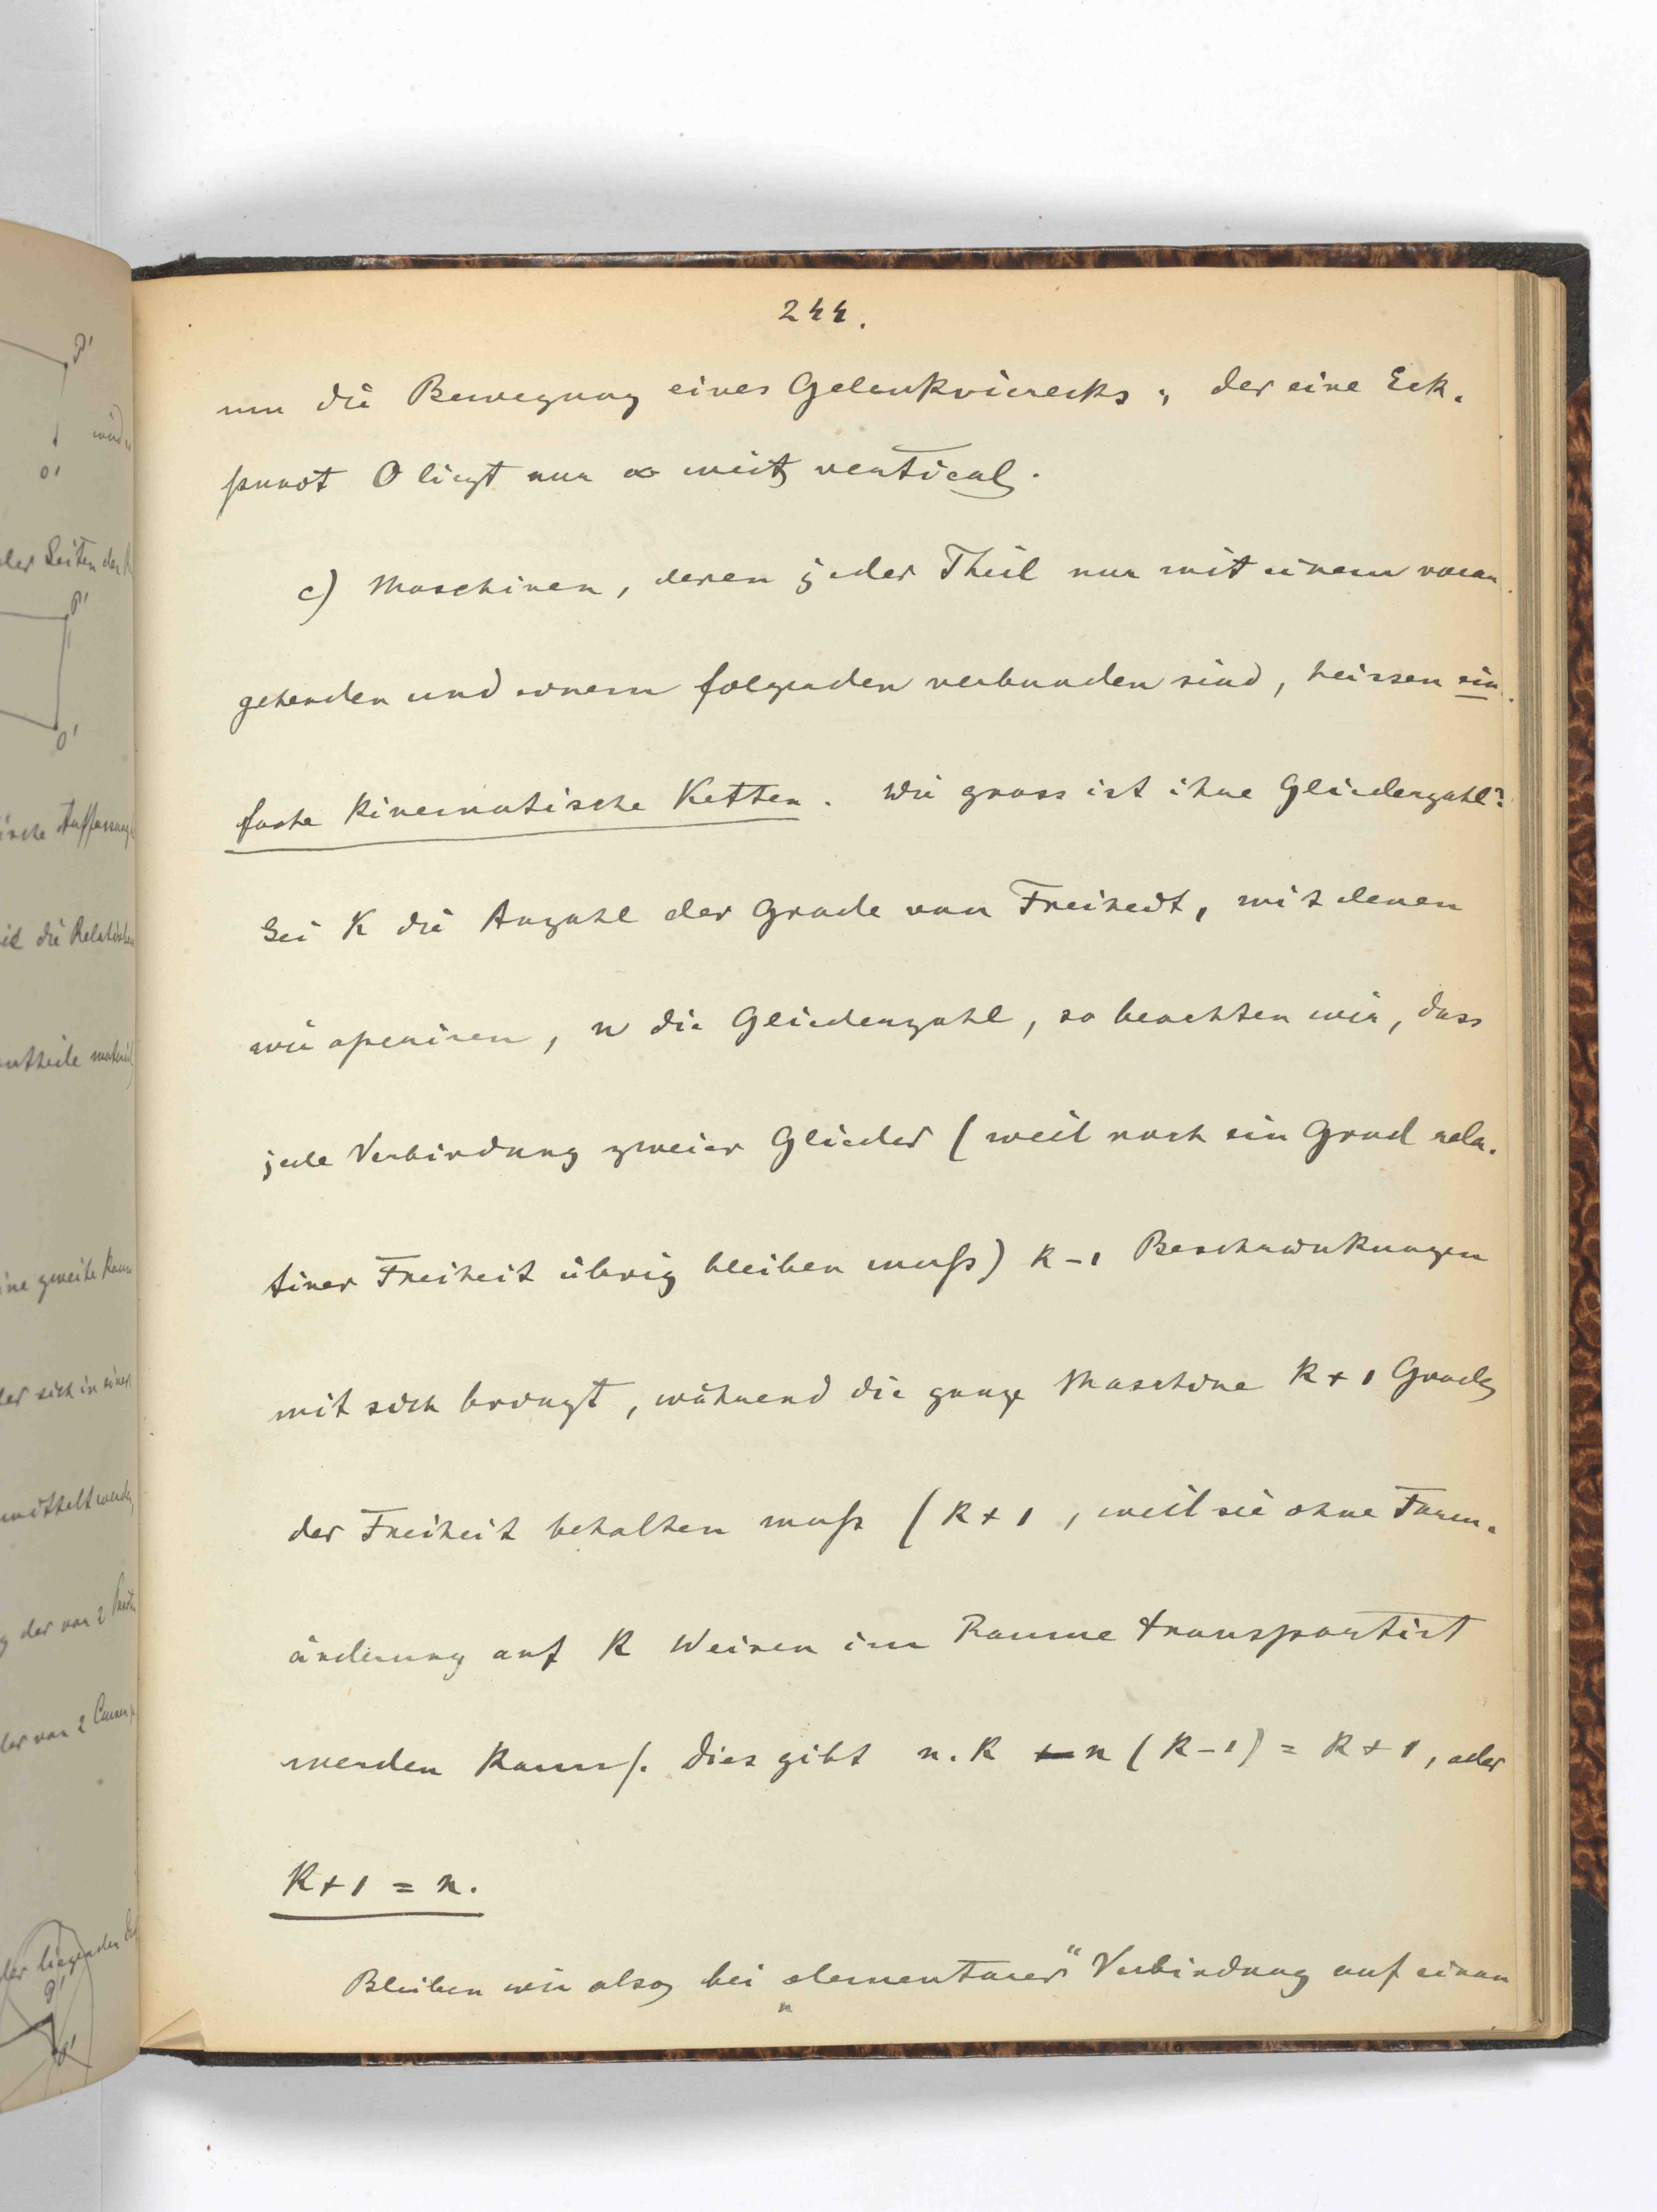 244.
um die Bewegung eines Gelenkvierecks; der eine Eck-
punct O liegt nur ∞ weit vertical.
c) Maschinen, deren jeder Theil nur mit einem voran-
gehenden und einem folgenden verbunden sind, heissen ein-
fache kinematische Ketten. Wie gross ist ihre Gliederzahl?
Sei K die Anzahl der Grade von Freiheit, mit denen
wir operiren, n die Gliederzahl, so beachten wir, dass
jede Verbindung zweier Glieder (weil noch ein Grad rela-
tiver Freiheit übrig bleiben muß) k-1 Beschränkungen
mit sich bringt, während die ganze Maschine K+1 Grade
der Freiheit behalten muß (K+1, weil sie ohne Form-
änderung auf K Weisen im Raume transportirt
werden kann). Dies gibt n.K - n (K-1) = K+1, oder
K+1 = n.
Bleiben wir also bei „elementarer“ Verbindung auf einen
P'
O'
wird
der Seiten der
P'
O'
ische Auffassung
die Relativ
ntheile material
ine zweite Raum
der sich in einer
mittelt werden
der von 2
der von 2 Curven
der liegenden
P'
O'